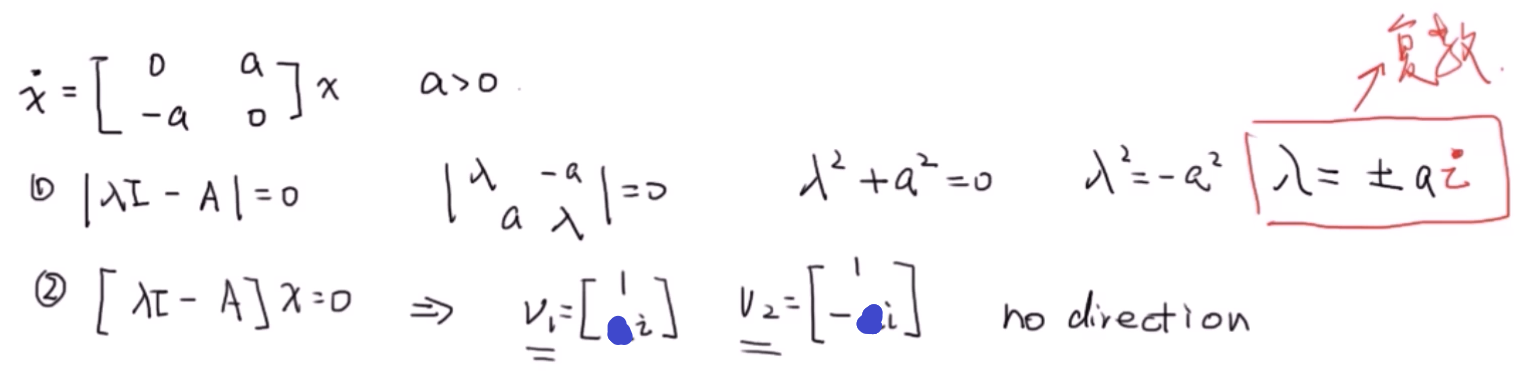 复数.
ẋ = [ 0 a ; -a 0 ] x a>0
① |λI - A| = 0 | λ -a ; a λ | = 0 λ² + a² = 0 λ² = -a² λ = ± a i
② [λI - A] x = 0 ⇒ v₁ = [ 1 ; i ] v₂ = [ 1 ; - i ] no direction